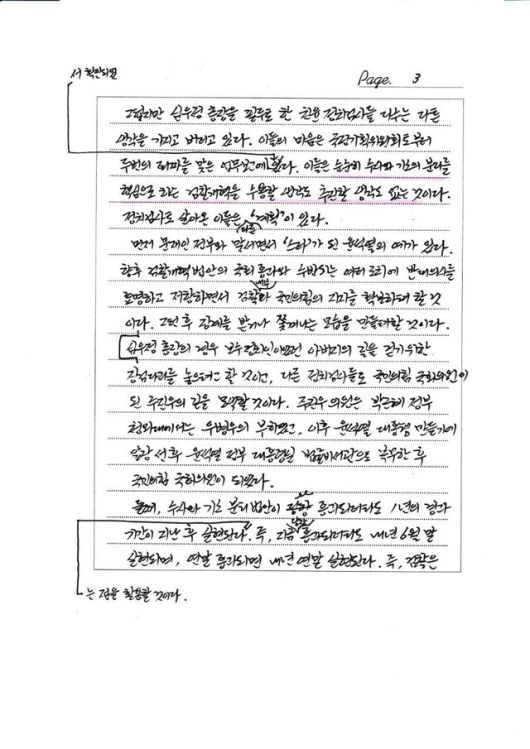 서 확인되면
Page. 3
그렇지만 심우정 총장을 필두로 한 친윤 정치검사들 다수는 다른
생각을 가지고 버티고 있다. 이들의 마음은 국정기획위원회로부터
두번의 퇴짜를 맞은 업무보고에서 있다. 이들은 순순히 수사와 기소의 분리를
핵심으로 하는 검찰개혁을 수용할 생각도 추진할 생각도 없는 것이다.
정치검사로 살아온 이들은 '계획'이 있다.
먼저 문재인 정부와 맞서면서 '스타'가 된 윤석열의 예가 있다.
향후 검찰개혁 법안의 국회 통과와 수반되는 여러 조치에 반대의사를
표명하고 저항하면서 검찰과 국민의힘의 지지를 확보하려 할 것
이다. 그런 후 징계를 받거나 쫓겨나는 모습을 만들려할 것이다.
심우정 총장의 경우 보수 정치인이었던 아버지의 길을 걷기 위한
징검다리를 놓으려고 할 것이고, 다른 정치검사들도 국민의힘 국회의원이
된 주진우의 길을 모색할 것이다. 주진우 의원은 박근혜 정부
청와대에서는 우병우의 부하였고, 이후 윤석열 대통령 만들기에
앞장 선 후 윤석열 정부 대통령실 법률비서관으로 복무한 후
국민의힘 국회의원이 되었다.
둘째, 수사와 기소 분리 법안이 당장 통과되더라도 1년의 경과
기간이 지난 후 실현된다. 즉, 지금 통과되더라도 내년 6월 말
실현되며, 연말 통과되면 내년 연말 실현된다. 즉, 검찰은
는 점을 활용할 것이다.